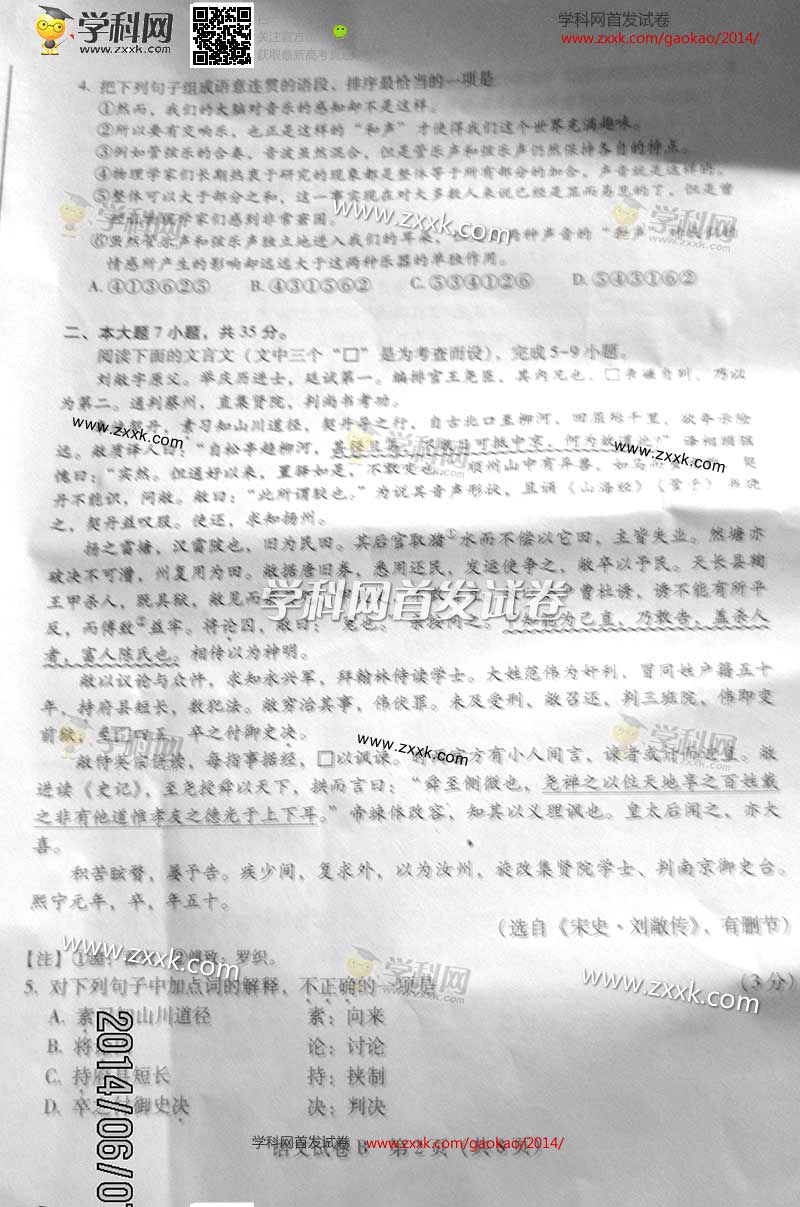 学科网
www.zxxk.com
关注官方
获取最新高考真题
学科网首发试卷
www.zxxk.com/gaokao/2014/
4. 把下列句子组成语意连贯的语段，排序最恰当的一项是
①然而，我们的大脑对音乐的感知却不是这样。
②所以要有交响乐，也正是这样的“和声”才使得我们这个世界充满趣味。
③例如管弦乐的合奏，音波虽然混合，但是管乐声和弦乐声仍然保持各自的特点。
④物理学家们长期热衷于研究的现象都是整体等于所有部分的加合，声音就是这样的。
⑤整体可以大于部分之和，这一事实现在对大多数人来说已经是显而易见的了，但是曾
学家们感到非常困惑。
⑥虽然管乐声和弦乐声独立地进入我们的耳朵，种声音的
情感所产生的影响却远远大于这两种乐器的单独作用。
A. ④①③⑥②⑤ B. ④③①⑤⑥② C. ⑤③④①②⑥ D. ⑤④③①⑥②
www.zxxk.com
学科网
二、本大题7小题，共35分。
阅读下面的文言文（文中三个“□”是为考查而设），完成5-9小题。
刘敞字原父。举庆历进士，廷试第一。编排官王尧臣，其内兄也，□，乃以
为第二。通判蔡州，直集贤院，判尚书考功。
契丹，素习知山川道径，契丹导之行，自古北口至柳河，回屈殆千里，欲夸示险
远。敞质译人曰：“自松亭趋柳河，可抵中京，何为故道此？”译相顾骇
愧曰：“实然。但通好以来，置驿如是，不敢变也。”顺州山中有异兽，如马
丹不能识，问敞。敞曰：“此所谓駮也。”为说其音声形状，且诵《山海经》《管子》书晓
之，契丹益叹服。使还，求知扬州。
扬之雷塘，汉雷陂也，旧为民田。其后官取潴①水而不偿以它田，主皆失业。然塘亦
破决不可漕，州复用为田。敞据唐旧券，悉用还民，发运使争之，敞卒以予民。天长县鞫
王甲杀人，既具狱，敞见而 曾杜诱，诱不能有所平
反，而傅致②益牢。将论囚，敞曰：“冤也。”亲按问之。知能为己直，乃敢告，盖杀人
者，富人陈氏也。相传以为神明。
学科网首发试卷
敞以议论与众忤，求知永兴军，拜翰林侍读学士。大姓范伟为奸利，冒同姓户籍五十
年，持府县短长，数犯法。敞穷治其事，伟伏罪。未及受刑，敞召还，判三班院，伟即变
前狱，至四五，卒之付御史决。
www.zxxk.com
敞侍英宗讲读，每指事据经，□以讽谏。时两宫方有小人间言，谏者或讦而过直。敞
进读《史记》，至尧授舜以天下，拱而言曰：“舜至侧微也，尧禅之以位天地享之百姓戴
之非有他道惟孝友之德光于上下耳。”帝竦体改容，知其以义理讽也。皇太后闻之，亦大
喜。
积苦眩瞀，屡予告。疾少间，复求外，以为汝州，旋改集贤院学士、判南京御史台。
熙宁元年，卒，年五十。
（选自《宋史·刘敞传》，有删节）
【注】①潴： ②傅致：罗织。
www.zxxk.com
5. 对下列句子中加点词的解释，不正确的一项是 （3分）
A. 素习知山川道径 素：向来
B. 将 论：讨论
C. 持府县短长 持：挟制
D. 卒之付御史决 决：判决
2014/06/0
学科网首发试卷 www.zxxk.com/gaokao/2014/
语文试卷B 第2页（共8页）